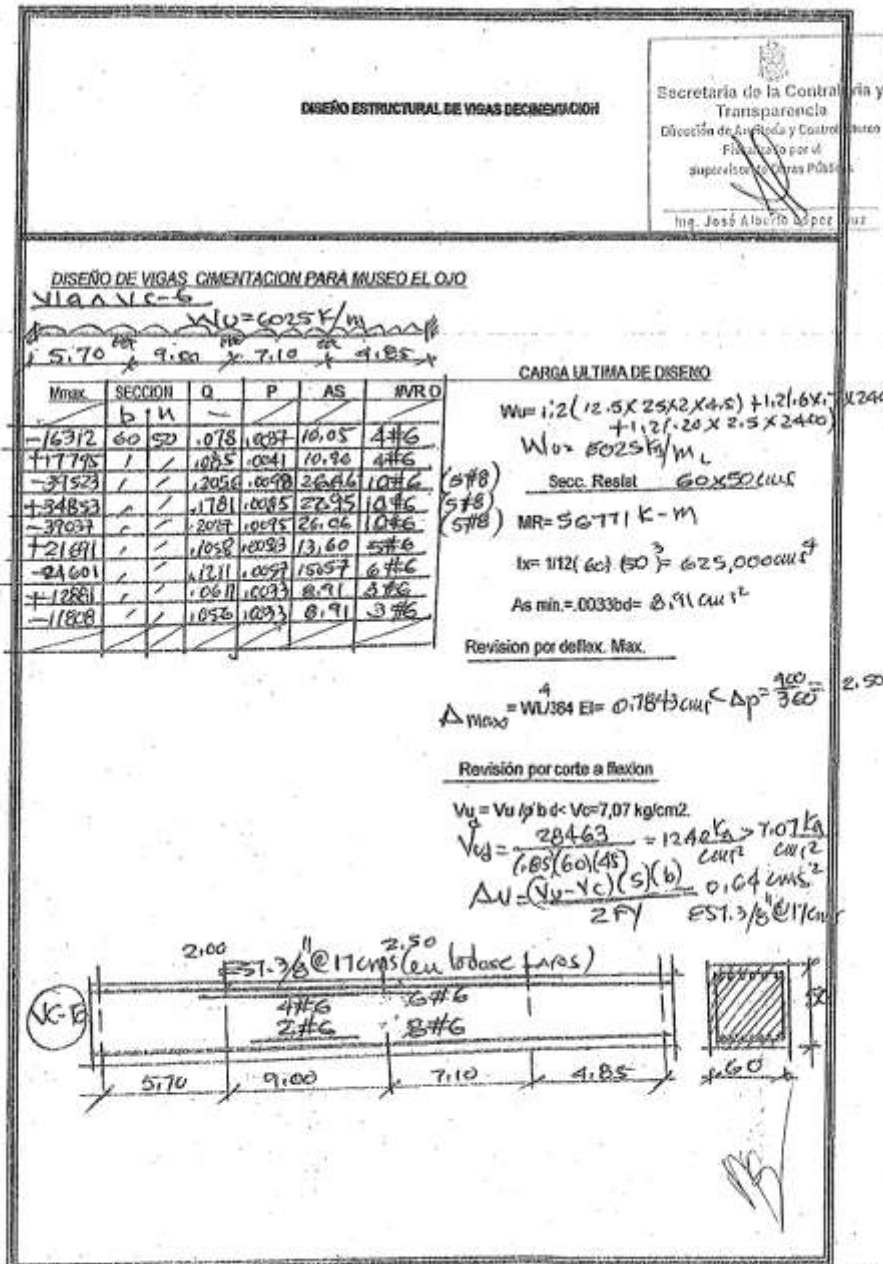 DISEÑO ESTRUCTURAL DE VIGAS DECIMENTACION
Secretaria de la Contraloria y
Transparencia
Dirección de Auditoria y Control
Fiscalizado por el
supervisor de Obras Públicas
Ing. José Alberto López Cruz
DISEÑO DE VIGAS CIMENTACION PARA MUSEO EL OJO
VIGA VC-6
WU=6025 K/m
5.70 9.00 7.10 4.85
Mmax. SECCION Q P AS #VR O
b h
-16312 60 50 .078 .0037 10.05 4#6
+17795 .085 .0041 10.90 4#6
-39523 .2056 .0098 26.46 10#6 (5#8)
+34853 .1781 .0085 22.95 10#6 (5#8)
-39037 .0095 26.06 10#6 (5#8)
+21691 .1058 13.60 5#6
-24601 .1211 .0057 6#6
+12881 .0033 8.91 3#6
-11808 .056 .0033 8.91 3#6
CARGA ULTIMA DE DISEÑO
Wu= 1.2(12.5X25X2X4.5) +1.2(.6X.7X240
+1.2(.20X2.5X2400)
Wu= 6025 Kg/mL
Secc. Resist 60x50 cms
MR= 56771 K-M
Ix= 1/12(60) (50)3= 625,000 cms4
As min.=.0033bd= 8.91 cms2
Revisión por deflex. Max.
Δ max = WL4/384 EI= 0.7843 cms < Δp= 900/360= 2.50
Revisión por corte a flexion
Vu = Vu /ø b d< Vc=7,07 kg/cm2.
Vud= 28463/(.85)(60)(45) = 12.40 Kg/cm2 > 7.07 Kg/cm2
AV= (Vu-Vc)(S)(b)/2FY 0.64 cms2
EST.3/8"@17cms
2.00 2.50
EST.3/8"@17cms
4#6 6#6
2#6 8#6
50
5.70 9.00 7.10 4.85
.60